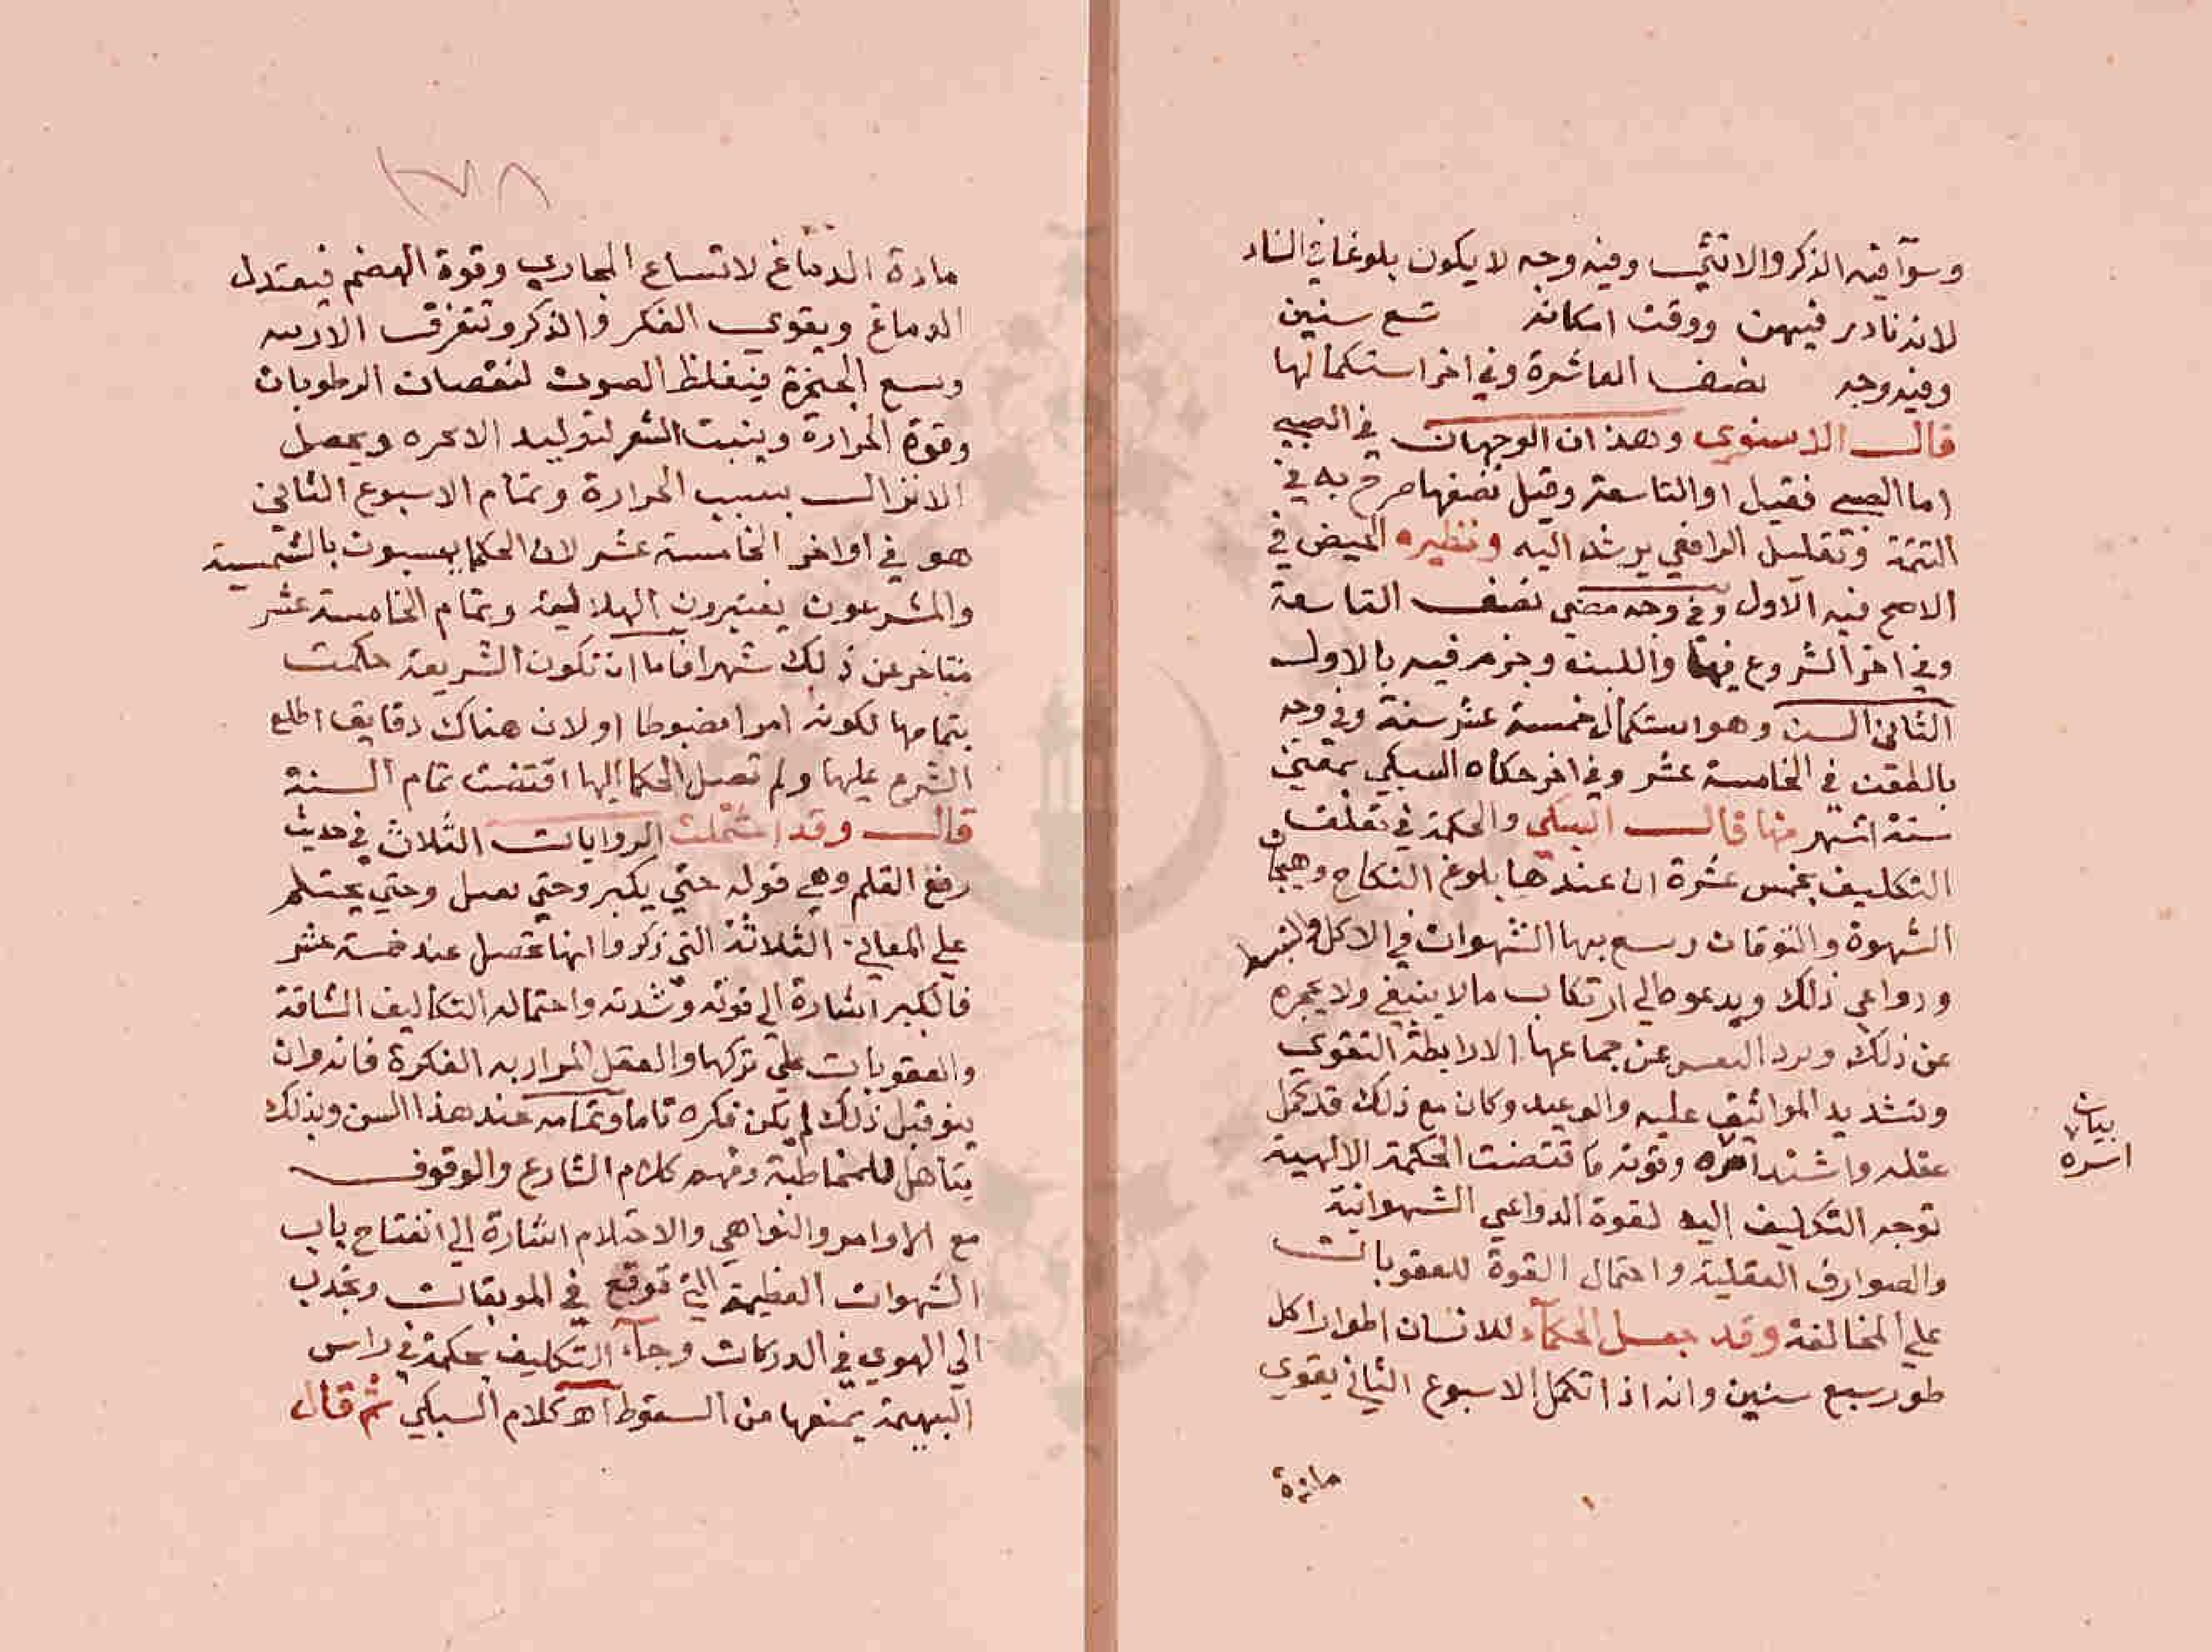 وسوآ فيه الذكر والانثي وفيه وجه لا يكون بلوغا في النسا
لانه نادر فيهن ووقت امكانه تسع سنين
وفيه وجه نصف العاشرة وفي اخر استكمالها
قال الاسنوي وهذان الوجهان في الصبي
اما الصبي فقيل اول التاسعة وقيل نصفها صرح به في
التتمة وتعليل الرافعي يرشد اليه ونظيره الحيض في
الاصح فيه الاول وفي وجه مضي نصف التاسعة
وفي اخر الشروع فيها واللبن وجزم فيه بالاول
الثاني السن وهو استكمال خمسة عشر سنة وفي وجه
بالطعن في الخامسة عشر وفي اخر حكاه السبكي بمضي
ستة اشهر منها قال السبكي والحكمة في تعلق
التكليف بخمس عشرة ان عندها بلوغ النكاح وهيجان
الشهوة والتوقان وتتسع بها الشهوات في الاكل والتبسط
ودواعي ذلك ويدعوه الي ارتكاب ما لا ينبغي ولا يحجره
عن ذلك ويرد النفس عن جماعها الا رابطة التقوي
وتشديد المواثيق عليه والوعيد وكان مع ذلك قد كمل
عقله واشتد اسره وقوته فاقتضت الحكمة الالهية
توجه التكليف اليه لقوة الدواعي الشهوانية
والصوارف العقلية واحتمال القوة للعقوبات
علي المخالفة وقد جعل الحكمآء للانسان اطوارا كل
طور سبع سنين وانه اذا تكمل الاسبوع الثاني يقوي
مادة
بيان
اسره
مادة الدماغ لاتساع المجاري وقوة الهضم فيعتدل
الدماغ ويقوي الفكر والذكر وتتفرق الارنبه
وتتسع الحنجرة فيغلظ الصوت لنقصان الرطوبات
وقوة الحرارة وينبت الشعر لتوليد الابخره ويحصل
الانزال بسبب الحرارة وتمام الاسبوع الثاني
هو في اواخر الخامسة عشر لان الحكما يحسبون بالشمسية
والمشرعون يعتبرون الهلالية وتمام الخامسة عشر
متاخر عن ذلك شهرا فاما ان تكون الشريعة حكمت
بتمامها لكونه امرا مضبوطا او لان هناك دقايق اطلع
الشرع عليها ولم تصل الحكما اليها اقتضت تمام السنة
قال وقد اشتملت الروايات الثلاث في حديث
رفع القلم وهي قوله حتي يكبر وحتي يعقل وحتي يحتلم
علي المعاني الثلاثة التي ذكروا انها تحصل عند خمسة عشر
فالكبر اشارة الي قوته وشدته واحتماله التكاليف الشاقة
والعقوبات علي تركها والعقل المراد به الفكرة فانه وان
ميز قبل ذلك لم يكن فكره تاما وتمامه عند هذا السن وبذلك
يتاهل للمخاطبة وفهم كلام الشارع والوقوف
مع الاوامر والنواهي والاحتلام اشارة الي انفتاح باب
الشهوات العظيمة التي توقع في الموبقات وتجذب
الي الهوي في الدركات وجآء التكليف بحكمة في راس
البهيمة يمنعها من السقوط اه كلام السبكي ثم قال